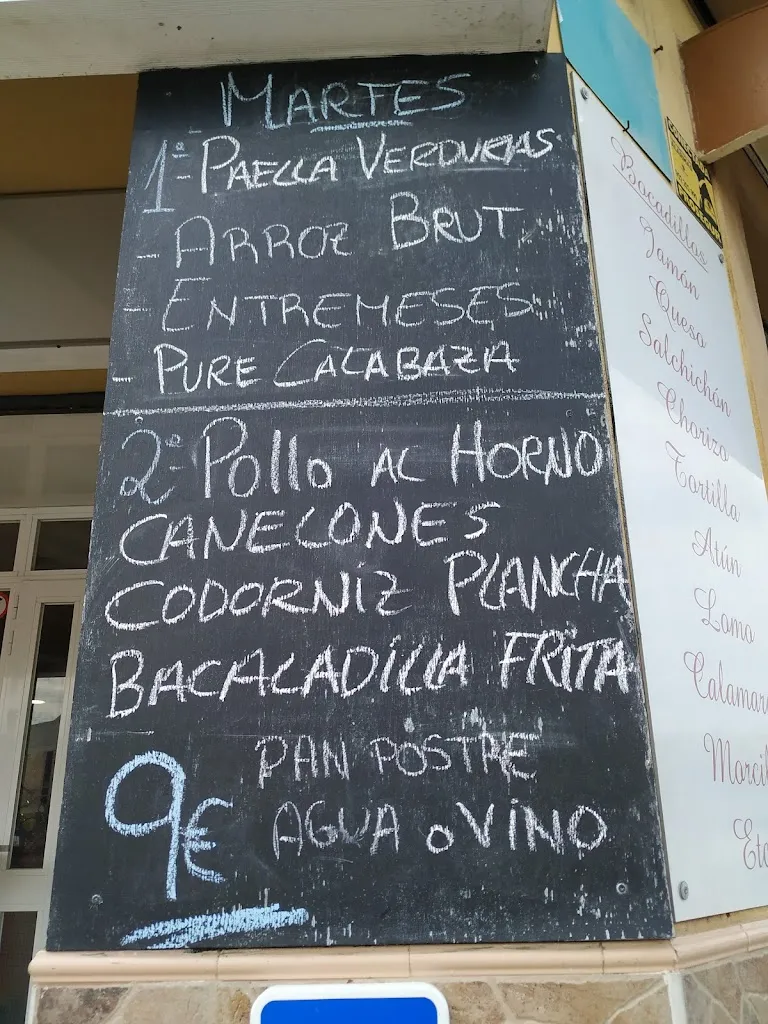 MARTES
1º PAELLA VERDURAS
- ARROZ BRUT
- ENTREMESES
- PURE CALABAZA
2º Pollo AL HORNO
CANELONES
CODORNIZ PLANCHA
BACALADILLA FRITA
PAN POSTRE
9€ AGUA o VINO
Bocadillos
Jamón
Queso
Salchichón
Chorizo
Tortilla
Atún
Lomo
Calamar
Morcil
Etc